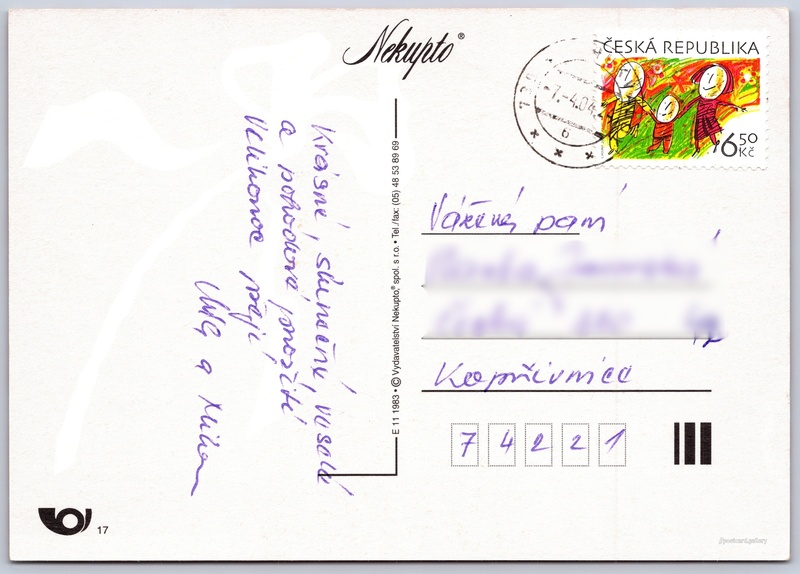 Nekupto®
ČESKÁ REPUBLIKA
6 50
Kč
7.-4.04
Krásné, slunečné, veselé
a pohodové prožití
Velikonoc přejí
a Milan
E 11 1983 • © Vydavatelství Nekupto,® spol. s r.o. • Tel./fax: (05) 48 53 89 69
Vážená paní
Kopřivnice
74221
17
//postcard.gallery